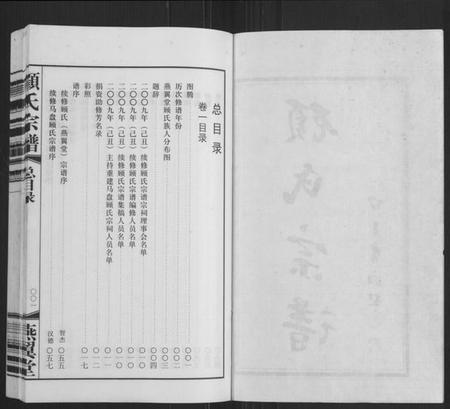 总目录
卷一目录
图腾 〇〇一
历次修谱年份 〇〇二
燕翼堂顾氏族人分布图 〇〇三
题辞 〇〇四
二〇〇九年（己丑）续修顾氏宗谱宗祠理事会名单
二〇〇九年（己丑）续修顾氏宗谱编修人员名单
二〇〇九年（己丑）续修顾氏宗谱集稿人员名单 〇一〇
二〇〇九年（己丑）主持重建马盘顾氏宗祠人员名单 〇一一
捐资助修芳名录 〇一二
彩照 〇一七
谱序
续修顾氏（燕翼堂）宗谱序 智杰 〇五五
续修马盘顾氏宗谱序 汉德 〇五七
顾氏宗谱
总目录
〇〇一
燕翼堂
顾氏宗谱